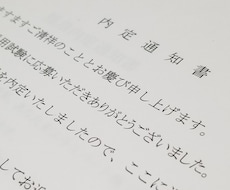 内定通知書
ますますご清祥のこととお慶び申し上げます。
用試験に応募いただきありがとうございました。
を内定いたしましたので、ここに
してお